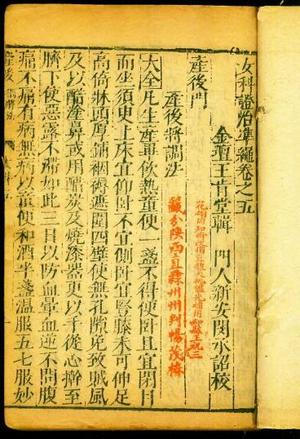 女科證治準繩卷之五
金壇王肯堂輯　門人新安閔承詔校
產後門
產後將調法
藏分陝西直隸州州判楊茂椿
大全凡生產畢飲熱童便一盞不得便臥且宜閉目
而坐須臾上床宜仰臥不宜側臥宜豎膝未可伸足
高倚床頭厚鋪裀褥遮圍四壁使無孔隙免致賊風
及以醋塗鼻或用醋炭及燒漆器更以手從心擀至
臍下使惡露不滯如此三日以防血暈血逆不問腹
痛不痛有病無病以童便和酒半盞溫服五七服妙
產後